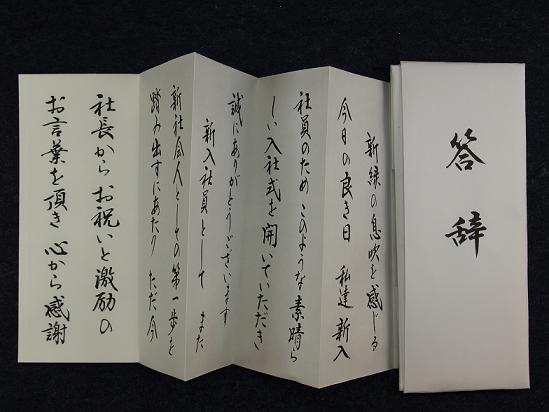 答辞
新緑の息吹を感じる
今日の良き日　私達新入
社員のため このような素晴ら
しい入社式を開いていただき
誠にありがとうございます
新入社員として　また
新社会人としての第一歩を
踏み出すにあたり ただ今
社長から お祝いと激励の
お言葉を頂き 心から感謝